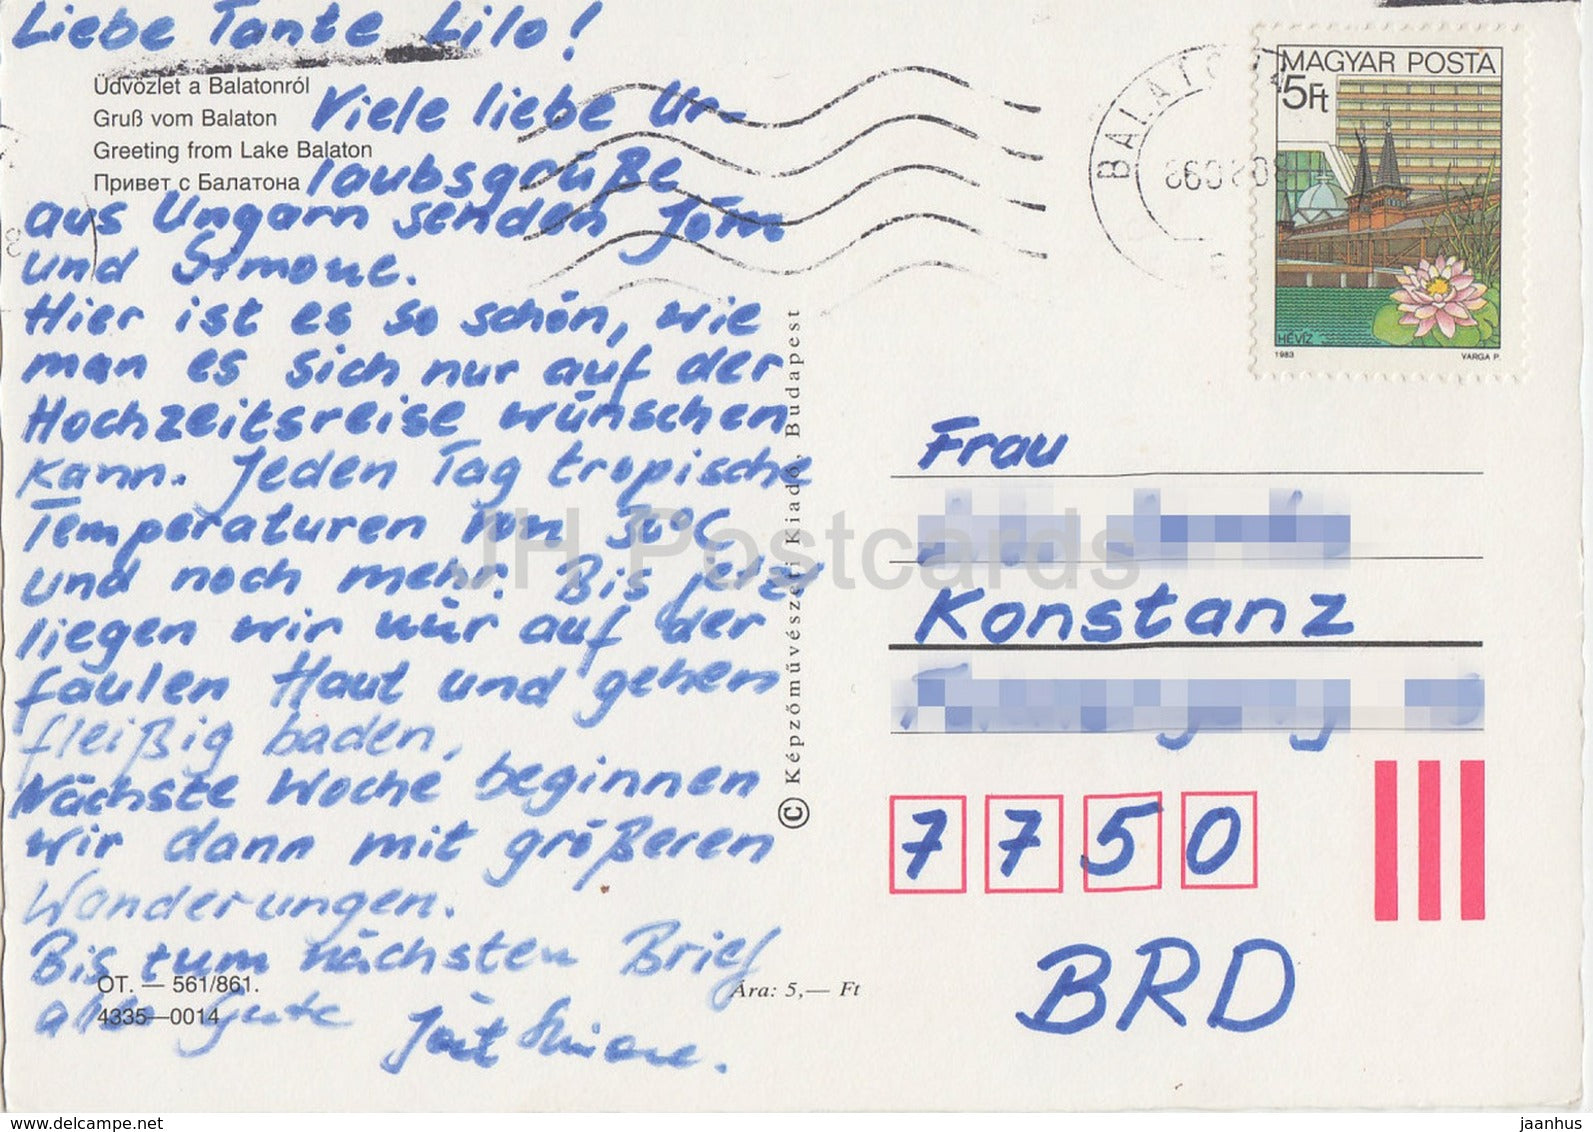 Liebe Tante Lilo!
Üdvözlet a Balatonról
Gruß vom Balaton
Greeting from Lake Balaton
Привет с Балатона
Viele liebe Ur-
laubsgrüße
aus Ungarn senden Jörn
und Simone.
Hier ist es so schön, wie
man es sich nur auf der
Hochzeitsreise wünschen
kann. Jeden Tag tropische
Temperaturen von 30°C
und noch mehr. Bis jetzt
liegen wir nur auf der
faulen Haut und gehen
fleißig baden.
Nächste Woche beginnen
wir dann mit größeren
Wanderungen.
Bis zum nächsten Brief
alles Gute
Simone.
OT. — 561/861.
4335—0014
Ára: 5,— Ft
© Képzőművészeti Kiadó, Budapest
MAGYAR POSTA
5Ft
HÉVÍZ
1983 VARGA P.
Frau
Konstanz
7750
BRD
JH Postcards
www.delcampe.net
jaanhus